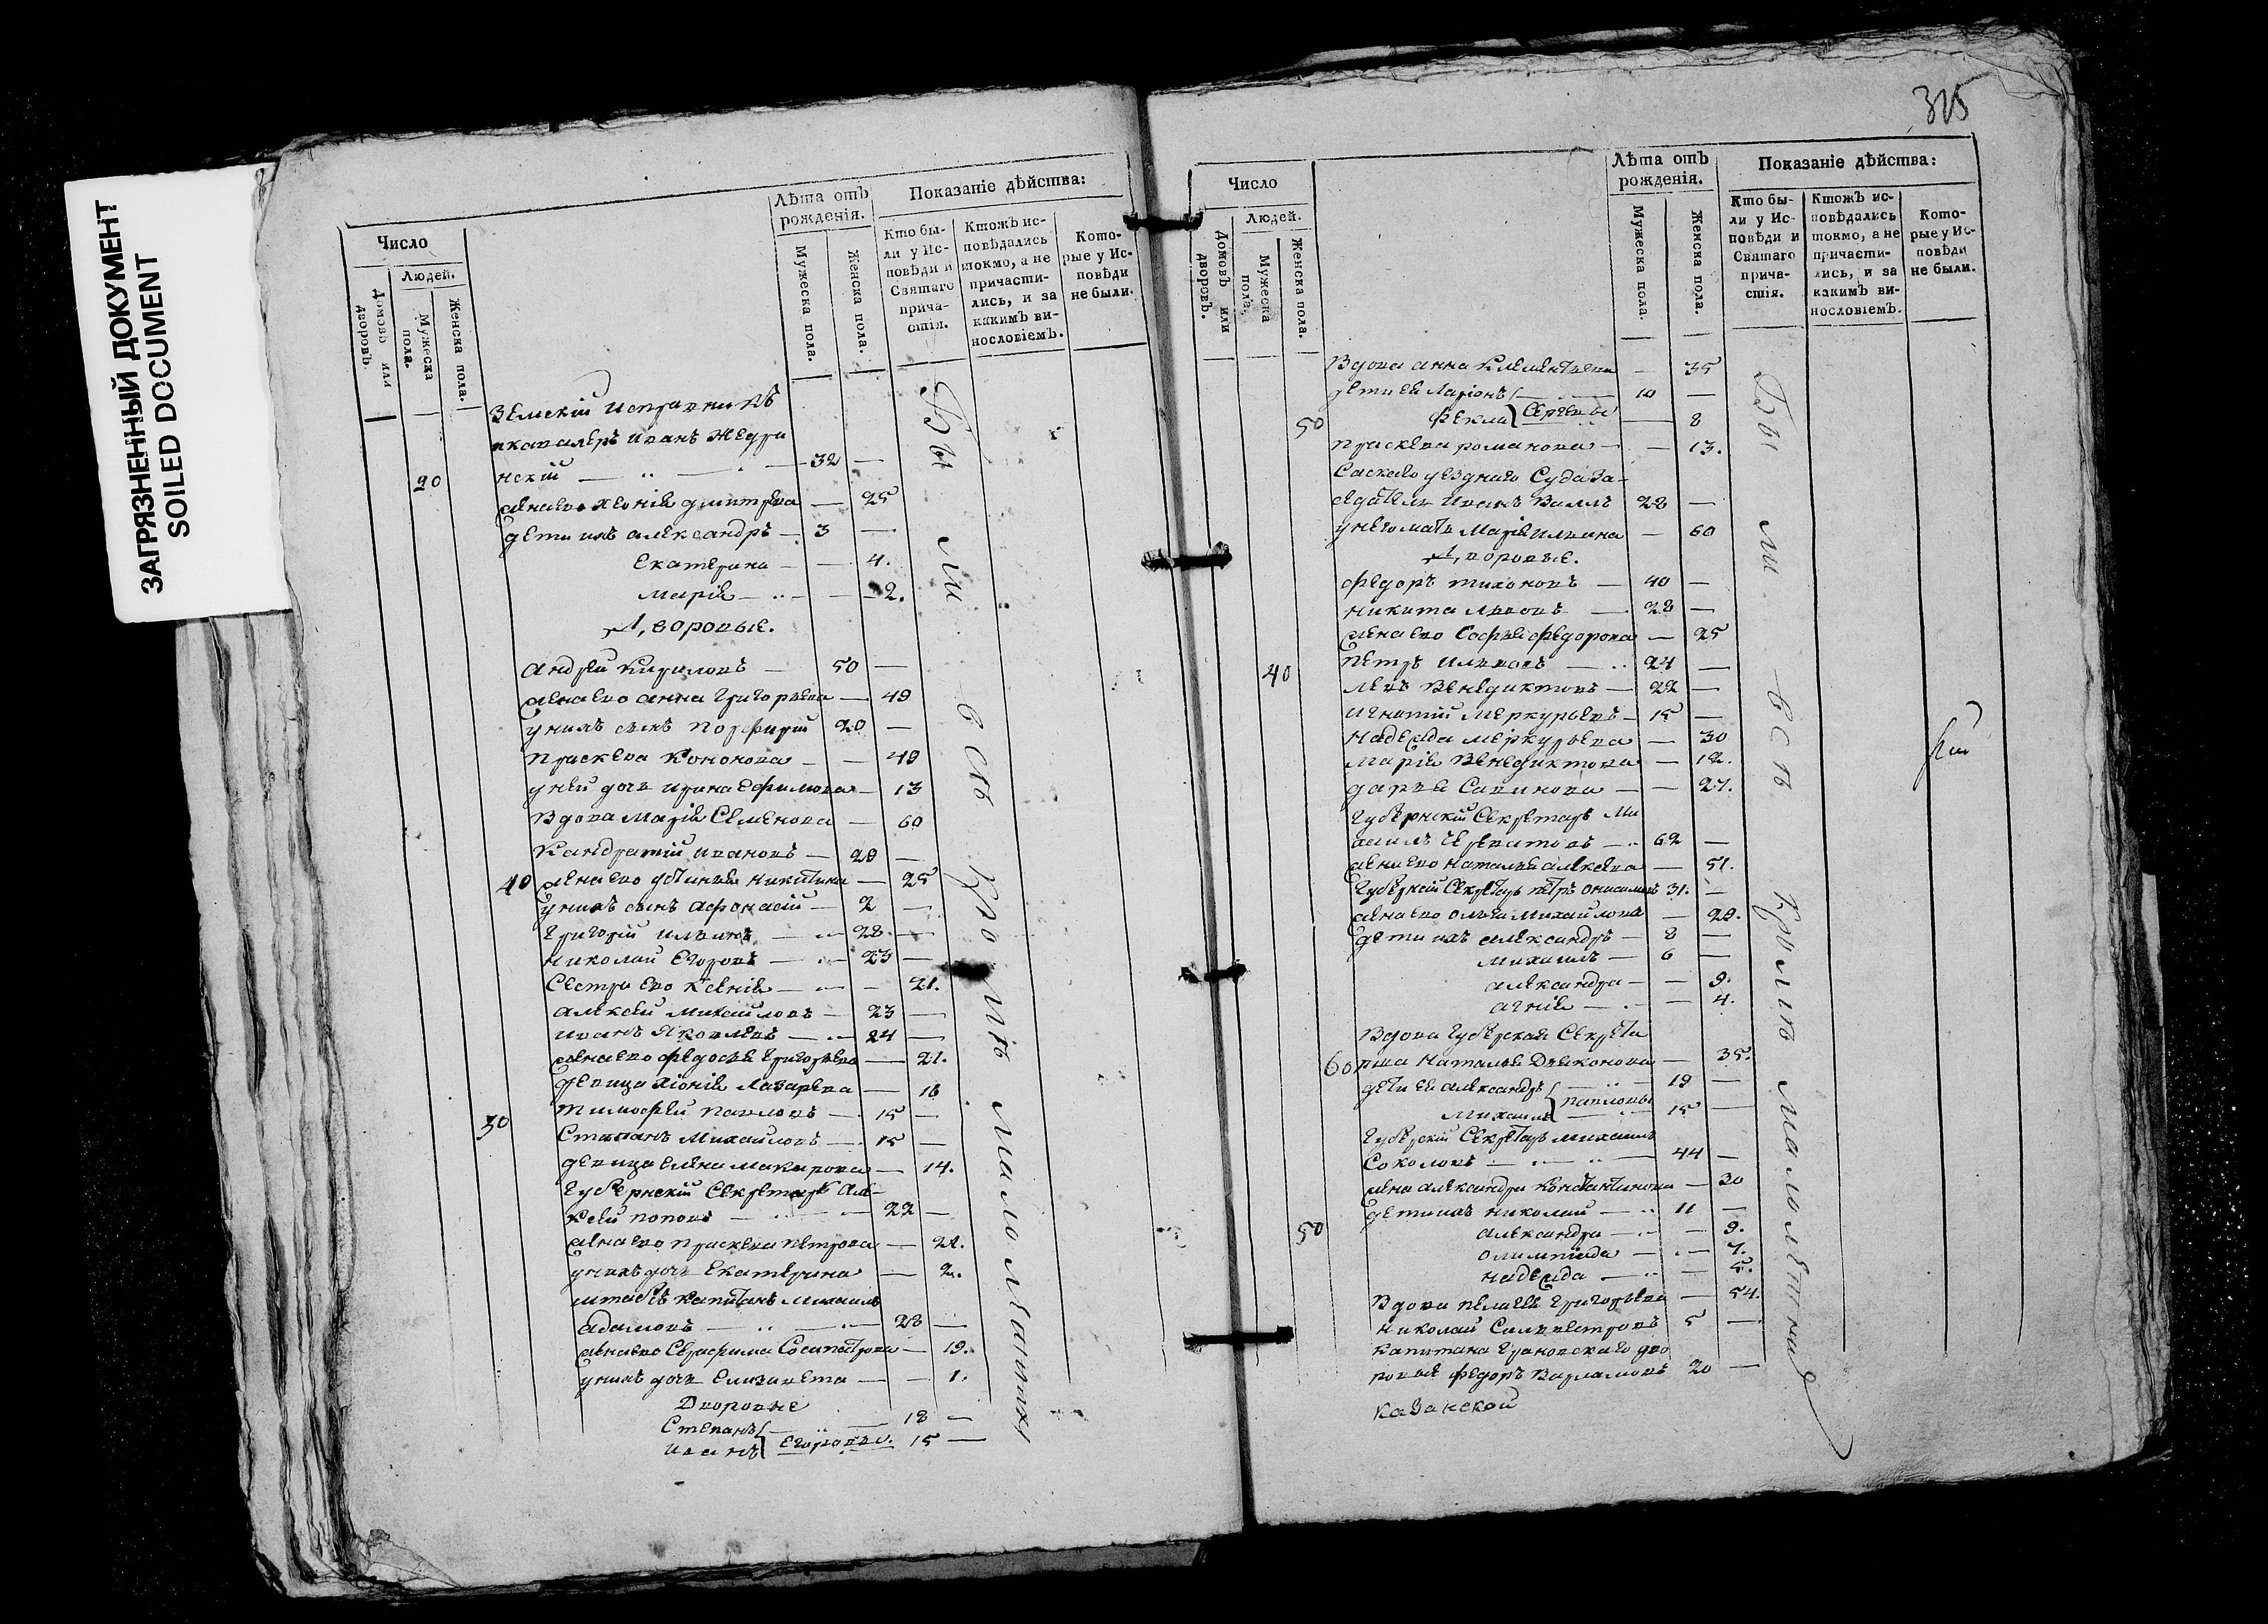 ЗАГРЯЗНЕННЫЙ ДОКУМЕНТ
SOILED DOCUMENT
Число
Людей.
Домовъ или дворовъ.
Мужеска пола.
Женска пола.
Лѣта отъ рожденія.
Мужеска пола.
Женска пола.
Показаніе дѣйства:
Кто бы-
ли у Ис-
повѣди и
Святаго
прича-
стія.
Ктожъ ис-
повѣдались
токмо, а не
причасти-
лись, и за
какимъ ви-
нословіемъ.
Кото-
рые у Ис-
повѣди
не были.
Земскій Исправникъ
икавалеръ иванъ Жедри
20 нскій 32
жена его Ксенія дмитрева 25
дети ихъ александръ 3
Екатерина 4.
марія 2.
Дворовые.
андрей Кириловъ 50
жена его анна григорьева 49
унихъ сынъ Порфирій 20
праскева Кононова 49
уней дочь ирина Ефимова 13
Вдова марія Семенова 60
Кандратій ивановъ 29
40 жена его устинья никитина 25
унихъ сынъ афонасій 2
григорій ильинъ 28
николай Егоровъ 23
Сестра его Ксенія 21.
алексей михайловъ 23
иванъ Яковлевъ 24
жена его федосья григорьева 21.
девица хіонія Лазарева 16
тимофей павловъ 15
30 Степанъ Михайловъ 15
девица елена макарова 14.
губернскій Секретарь але-
ксей поповъ 22
жена его праскева петрова 22.
унихъ дочь Екатерина 2.
штабсъ капитанъ михаилъ
адамовъ 28
жена его Серафима Сосипатрова 19.
унихъ дочь Елизавета 1.
Дворовые
Степанъ 18
иванъ Егоровы. 15
Бы ли всѣ кромѣ малолѣтнихъ
315
Число
Людей.
Домовъ или дворовъ.
Мужеска пола.
Женска пола.
Лѣта отъ рожденія.
Мужеска пола.
Женска пола.
Показаніе дѣйства:
Кто бы-
ли у Ис-
повѣди и
Святаго
прича-
стія.
Ктожъ ис-
повѣдались
токмо, а не
причасти-
лись, и за
какимъ ви-
нословіемъ.
Кото-
рые у Ис-
повѣди
не были.
Вдова анна Клементьева 35
дети ея Ларіонъ 10
50 Фекла Сергевы 8
праскева романова 13.
уезднаго Суда за-
седатель иванъ 28
унего мать Марія ильина 60
Дворовые.
федоръ тихоновъ 40
никита львовъ 28
жена его Софья федорова 25
40 петръ ильинъ 24
левъ Венедиктовъ 22
игнатій меркурьевъ 15
надежда меркурьева 30
марія Венедиктова 12.
дарья Савинова 27.
губернскій Секретарь Ми
хаилъ 62
жена его наталья алексева 51.
губернскій Секретарь петръ онисимовъ 31.
жена его ольга михайлова 29.
дети ихъ александръ 8
михаилъ 6
александра 9.
агнія 4.
Вдова губернская Секрета
60 рша наталья Дьяконова 35.
дети ея александръ 19
михаилъ павловы 15
губернскій Секретарь михаилъ
Соколовъ 44
жена александра константинова 30
дети ихъ николай 11
50 александра 9.
олимпіада 7.
надежда 5.
Вдова пелагея григорьева 54.
николай Сильвестровъ 5
капитана грановскаго дво
ровые федоръ Варламовъ 20
казанской
Бы ли всѣ кромѣ малолѣтних